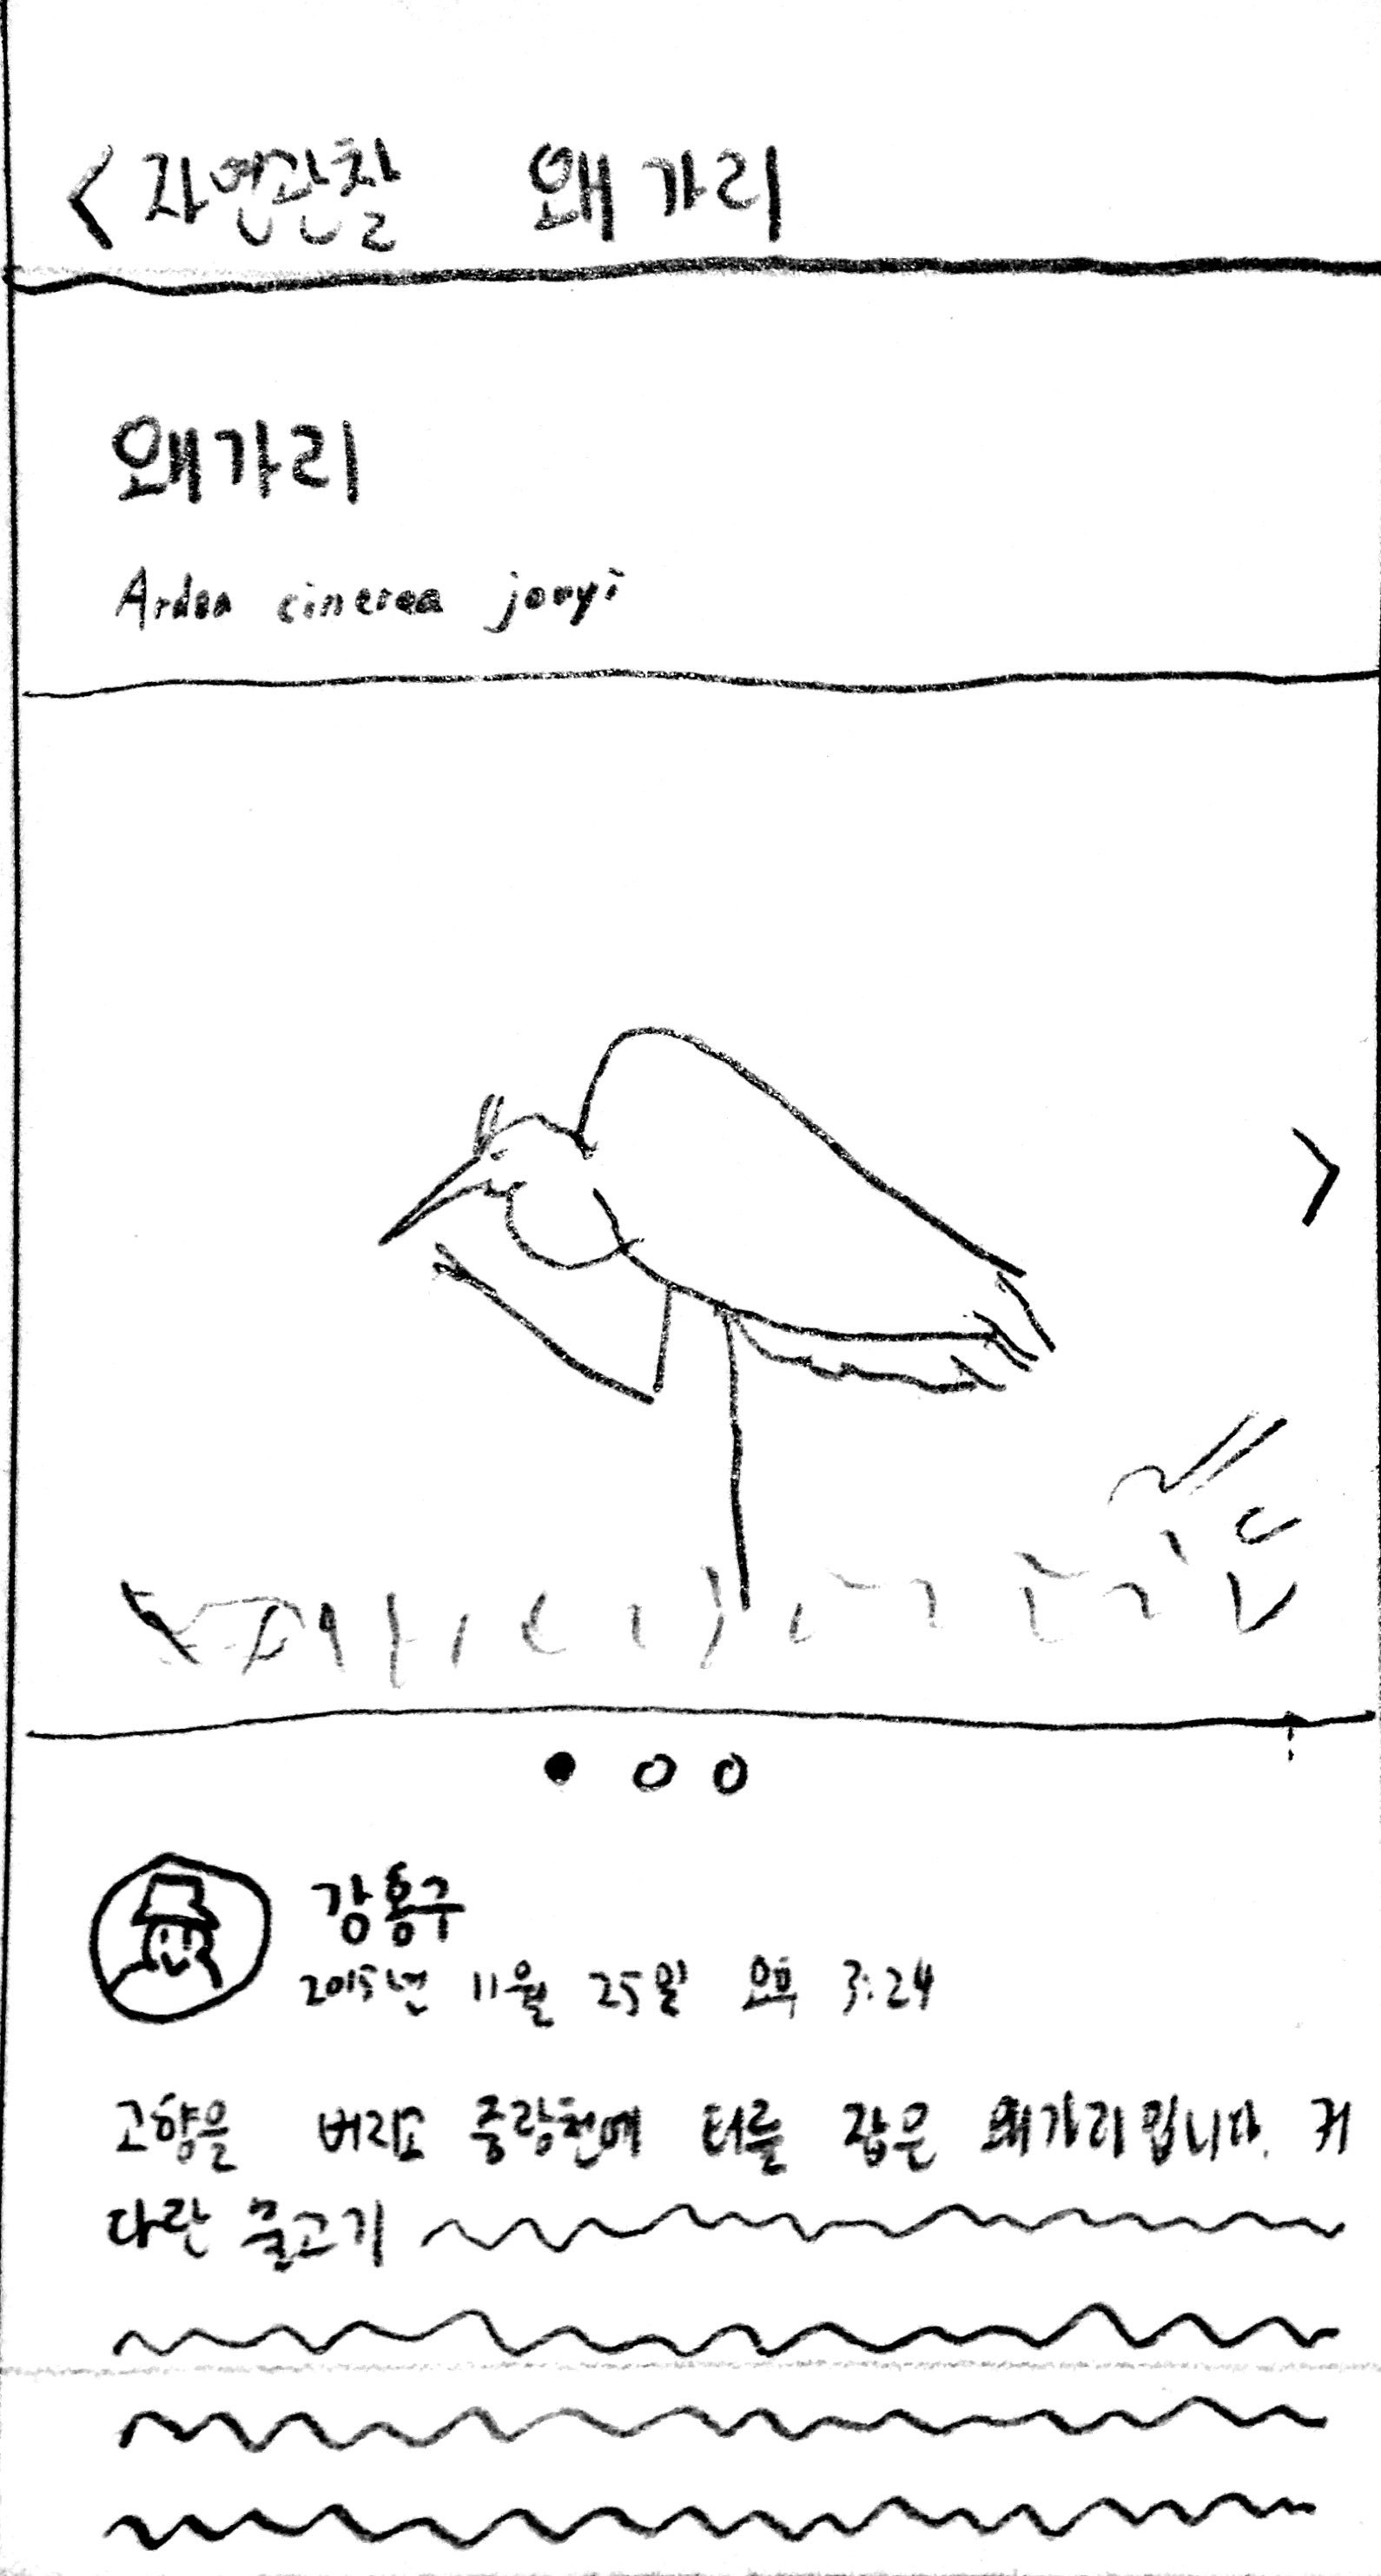 < 자연관찰 왜가리
왜가리
Ardea cinerea jouyi
강홍구
2015년 11월 25일 오후 3:24
고향을 버리고 중랑천에 터를 잡은 왜가리입니다. 커
다란 물고기